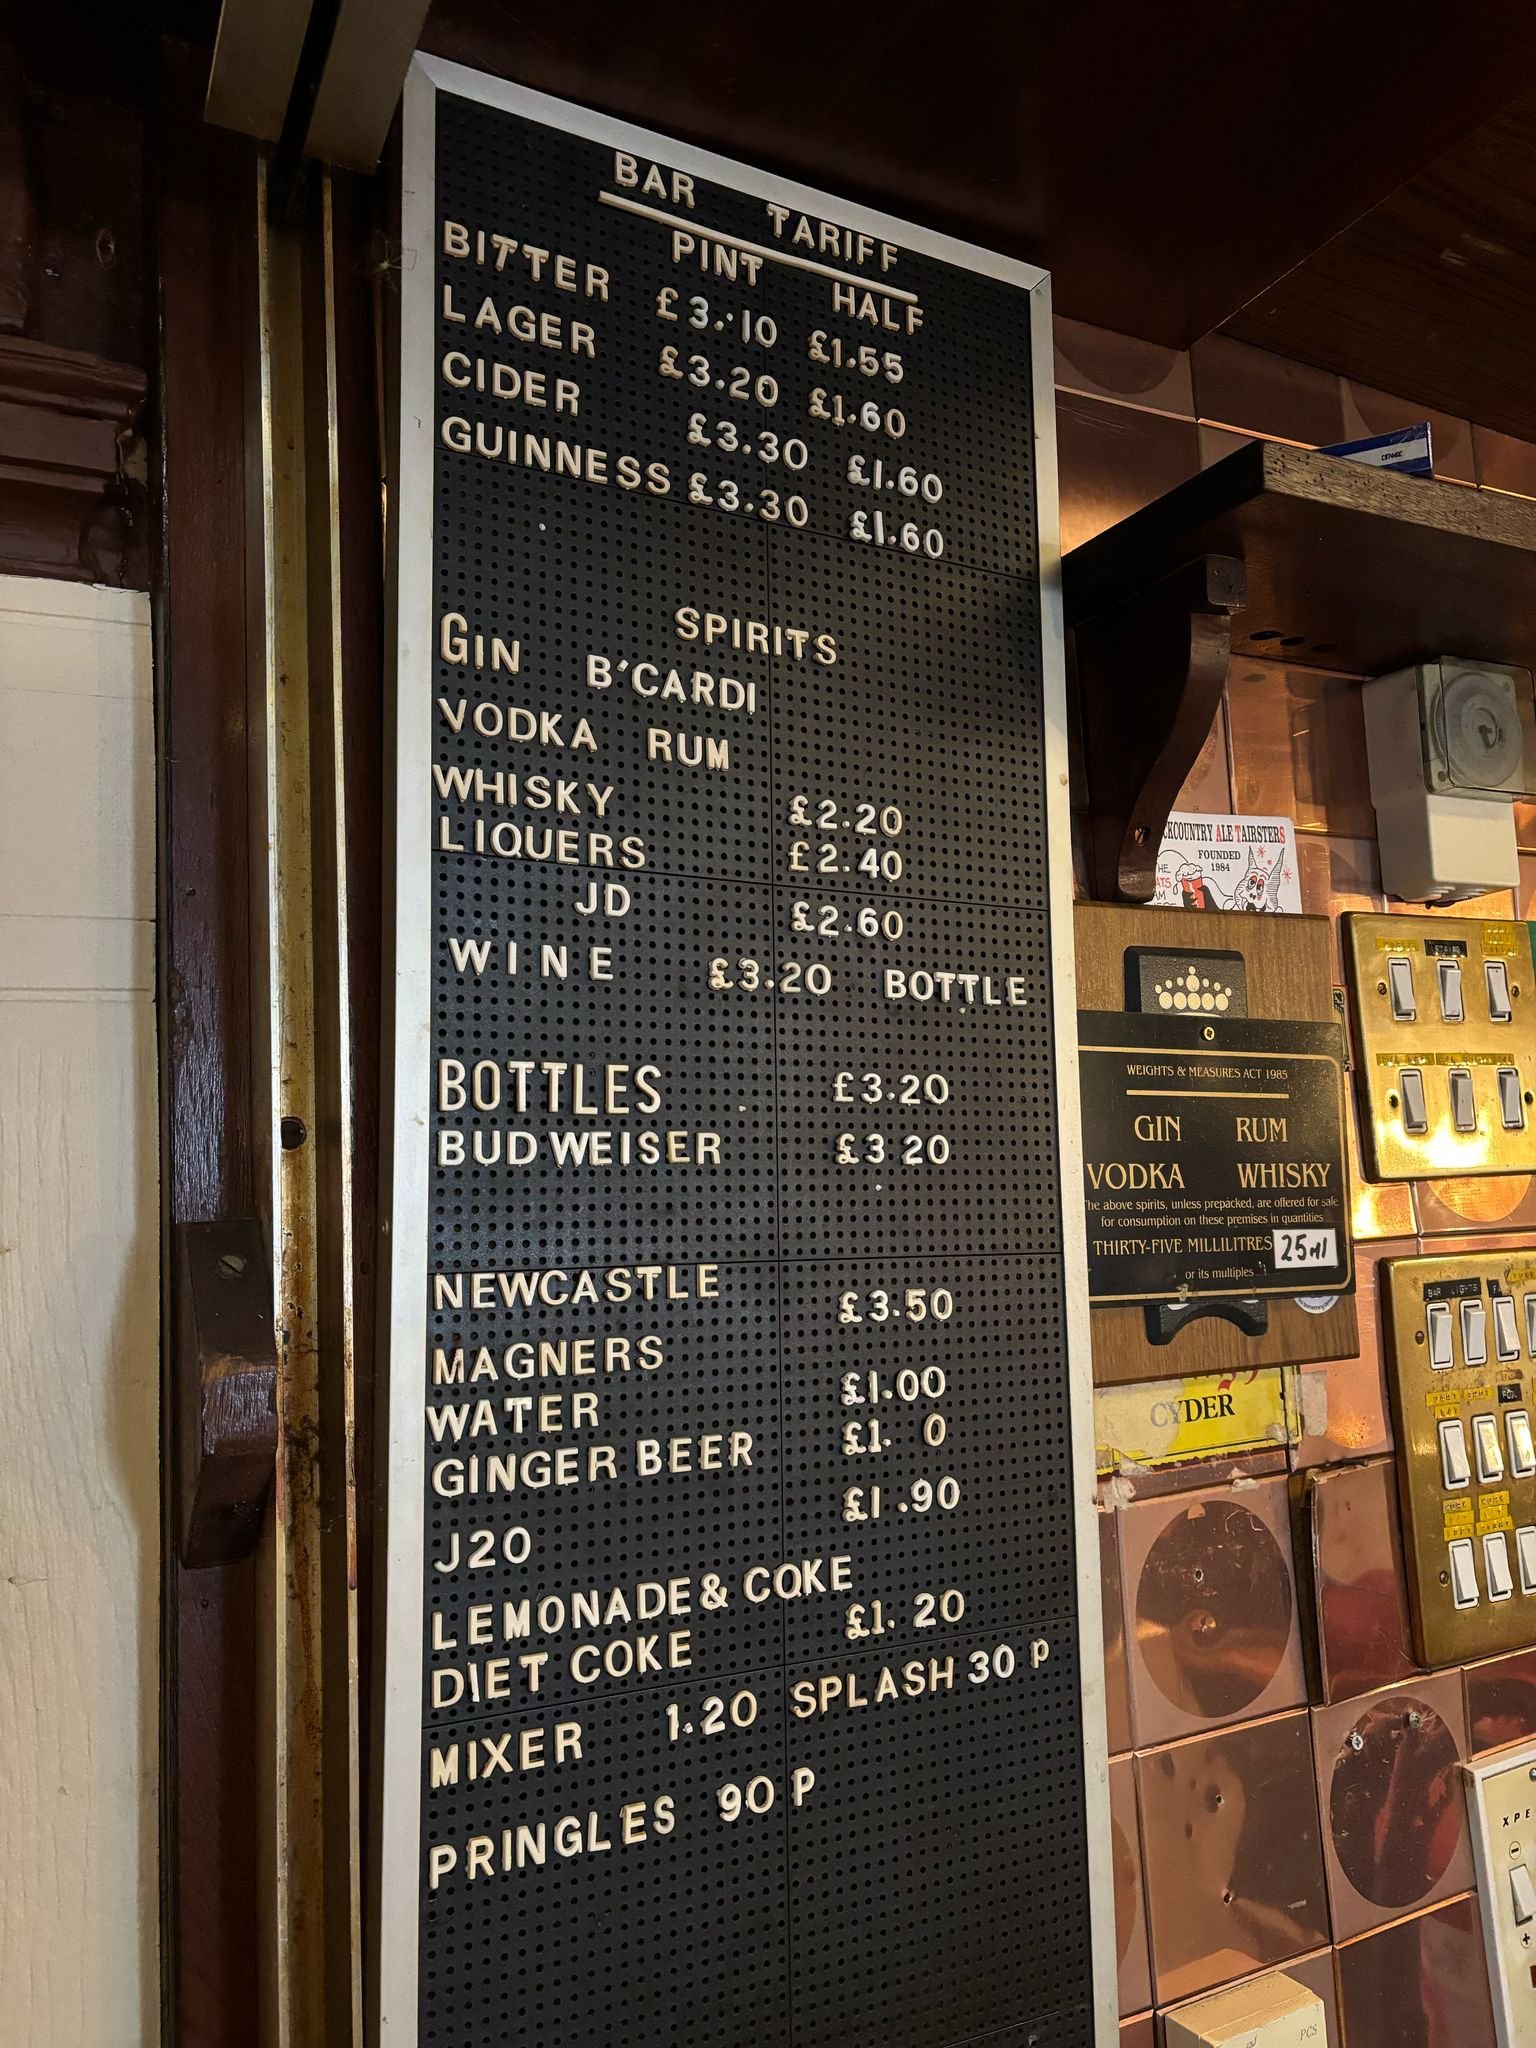 BAR TARIFF
PINT HALF
BITTER £3.10 £1.55
LAGER £3.20 £1.60
CIDER £3.30 £1.60
GUINNESS £3.30 £1.60
SPIRITS
GIN B'CARDI
VODKA RUM
WHISKY £2.20
LIQUERS £2.40
JD £2.60
WINE £3.20 BOTTLE
BOTTLES £3.20
BUDWEISER £3 20
NEWCASTLE
MAGNERS £3.50
WATER £1.00
GINGER BEER £1. 0
J20 £1.90
LEMONADE & COKE
DIET COKE £1.20
MIXER 1.20 SPLASH 30 P
PRINGLES 90 P
CKCOUNTRY ALE TAIRSTERS
FOUNDED
1984
WEIGHTS & MEASURES ACT 1985
GIN RUM
VODKA WHISKY
he above spirits, unless prepacked, are offered for sale
for consumption on these premises in quantities
THIRTY-FIVE MILLILITRES 25ml
or its multiples
CYDER
BAR LIGHTS
XPE
PCS